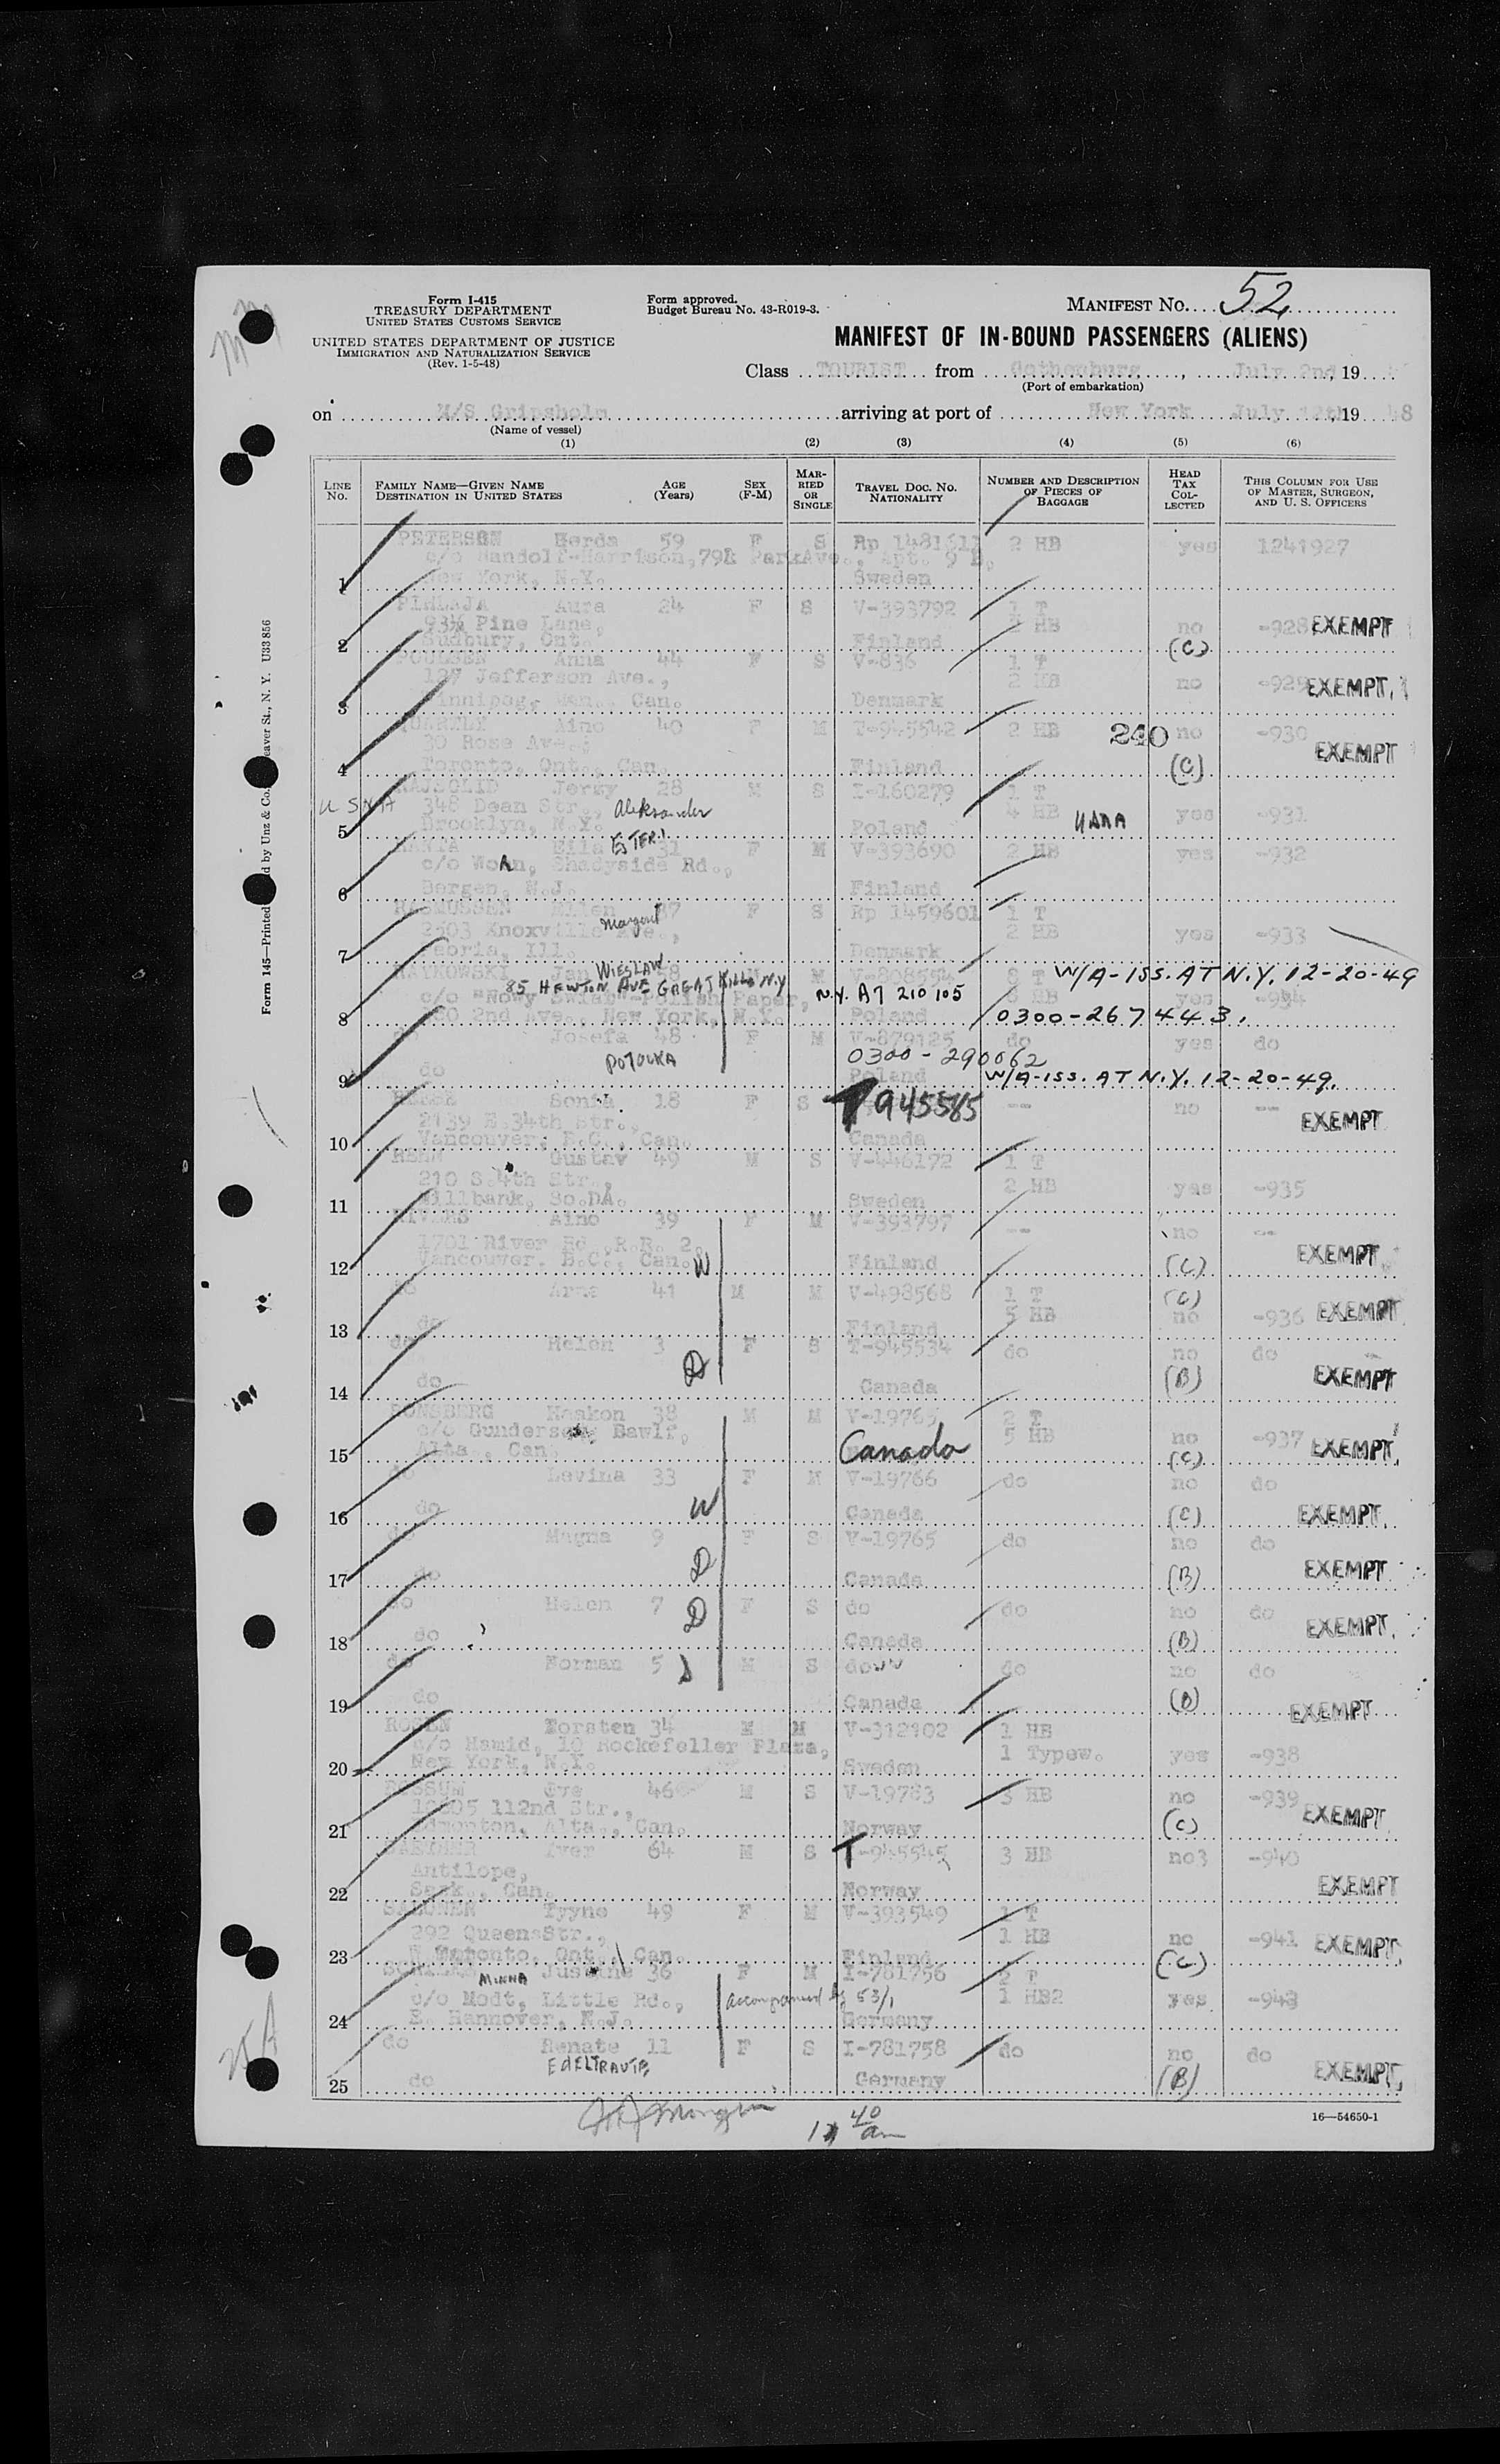 Form I-415
TREASURY DEPARTMENT
UNITED STATES CUSTOMS SERVICE
UNITED STATES DEPARTMENT OF JUSTICE
IMMIGRATION AND NATURALIZATION SERVICE
(Rev. 1-5-48)
Form approved.
Budget Bureau No. 43-R019-3.
MANIFEST No. 52
MANIFEST OF IN-BOUND PASSENGERS (ALIENS)
Class TOURIST from Gothenburg, July 2nd, 19
(Port of embarkation)
on M/S Gripsholm arriving at port of New York July 12th, 19 48
(Name of vessel)
(1) (2) (3) (4) (5) (6)
LINE No. FAMILY NAME—GIVEN NAME DESTINATION IN UNITED STATES AGE (Years) SEX (F-M) MARRIED OR SINGLE TRAVEL DOC. No. NATIONALITY NUMBER AND DESCRIPTION OF PIECES OF BAGGAGE HEAD TAX COLLECTED THIS COLUMN FOR USE OF MASTER, SURGEON, AND U. S. OFFICERS
PETERSEN Gerda 59 F S Rp 1481611 2 HB yes 1241927
c/o Randolf-Harrison, ParkAve., Apt. 9 B,
1 New York, N.Y. Sweden
PIHLAJA Aura 24 F S V-393792 1 T
93½ Pine Lane, 2 HB no -928 EXEMPT
2 Sudbury, Ont. Finland (C)
POULSEN Anna 44 F S V-836 1 T
Jefferson Ave., 2 HB no -929 EXEMPT
3 Winnipeg, Man. Can. Denmark
Aino 40 F M T-945542 2 HB 240 no -930
30 Rose Ave., EXEMPT
4 Toronto, Ont., Can. Finland (C)
Jerzy 28 M S I-160279 1 T
348 Dean Str., Aleksander 4 HB yes -931
5 Brooklyn, N.Y. Poland
RANTA Eila ESTERI 31 F M V-393690 2 HB yes -932
c/o Shadyside Rd.,
6 Bergen, N.J. Finland
RASMUSSEN Ellen F S Rp 1459601 1 T
2503 Knoxville Ave., Margout 2 HB yes -933
7 Peoria, Ill. Denmark
RAYKOWSKI Jan WIESLAW 58 M M V-808554 8 T W/A-ISS. AT N.Y. 12-20-49
85 HEWTON AVE GREAT KILLS N.Y. N.Y. A7 210 105
c/o "Nowy Swiat"-Polish Paper, HB yes -934
8 2nd Ave., New York, N.Y. Poland 0300-267443.
do Josefa 48 F M V-879125 do yes do
POTOCKA 0300-290062
9 do Poland W/A-ISS. AT N.Y. 12-20-49.
Sonia 18 F S T 945585 -- no --
2139 E.34th Str., EXEMPT
10 Vancouver, B.C., Can. Canada
RENN Gustav 49 M S V-446172 1 T
210 S.4th Str., 2 HB yes -935
11 Millbank, So.DA. Sweden
Aino 39 F M V-393797 -- no --
1701 River Rd.,R.R. 2, EXEMPT
12 Vancouver. B.C., Can. W Finland (C)
do Arne 41 M M V-498568 1 T (C)
5 HB no -936 EXEMPT
13 do Finland
do Helen 3 F S T-945534 do no do
14 do D Canada (B) EXEMPT
RONSBERG Haakon 38 M M V-19765 2 T
c/o Gunderson, Bawlf, 5 HB no -937 EXEMPT
15 Alta., Can. Canada (C)
do Lavina 33 F M V-19766 do no do
16 do W Canada (C) EXEMPT
do Magna 9 F S V-19765 do no do
17 do D Canada (B) EXEMPT
do Helen 7 D F S do do no do
18 do Canada (B) EXEMPT
do Norman 5 D M S do do no do
19 do Canada (B) EXEMPT
ROSEN Torsten 34 M M V-312102 1 HB
c/o Hamid, 10 Rockefeller Plaza, 1 Typew. yes -938
20 New York, N.Y. Sweden
ROSSUM Ove 46 M S V-19763 3 HB no -939
112nd Str., EXEMPT
21 Edmonton, Alta., Can. Norway (C)
Iver 64 M S T-945545 3 HB no3 -940
Antilope,
22 Sask., Can. Norway EXEMPT
SALONEN Tyyne 49 F M V-393549 1 T
292 QueensStr., 1 HB no -941 EXEMPT
23 W.Toronto, Ont., Can. Finland (C)
MINNA Justine 36 F M I-781756 2 T
c/o Modt, Little Rd., accompanied by 53/1 1 HB2 yes -943
24 E. Hannover, N.J. Germany
do Renate 11 F S I-781758 do no do
EDELTRAUTE
25 do Germany (B) EXEMPT
16—54650-1
Form 145—Printed